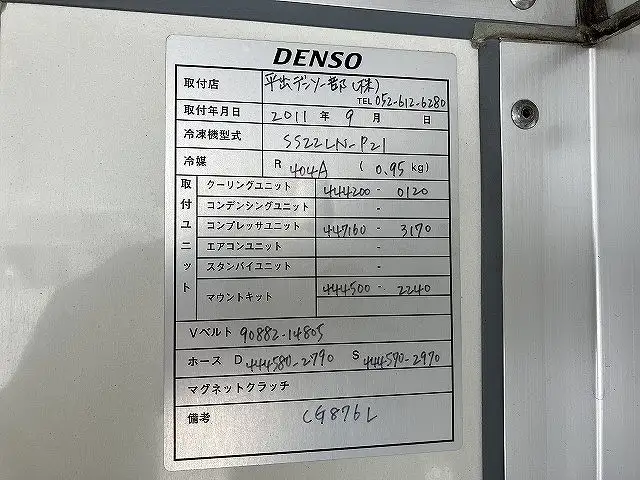 DENSO
取付店 平出デンソー部(株)
TEL 052-612-6280
取付年月日 2011年 9月 日
冷凍機型式 SS22LN-P21
冷媒 R 404A ( 0.95kg)
取付ユニット
クーリングユニット 444200-0120
コンデンシングユニット -
コンプレッサユニット 447160-3170
エアコンユニット -
スタンバイユニット -
マウントキット 444500-2240
Vベルト 90882-14805
ホース D 444580-2790 S 444590-2970
マグネットクラッチ
備考 CG876L